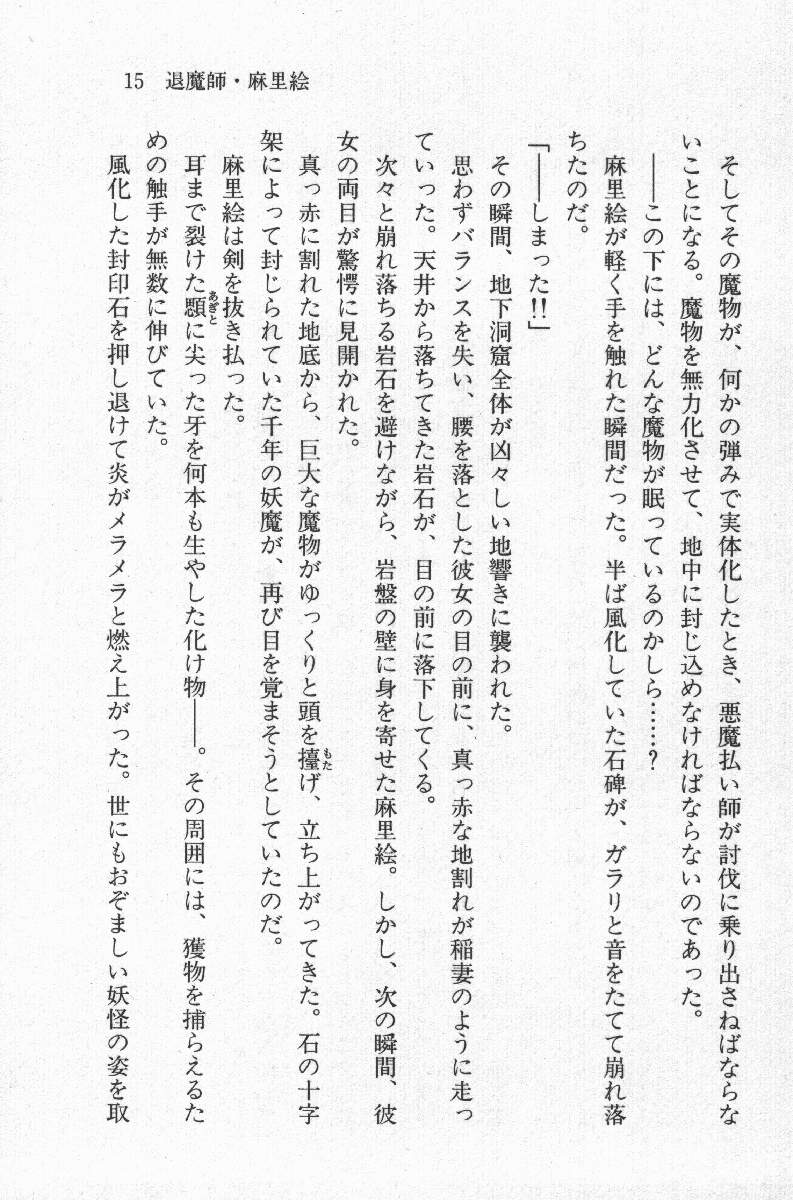 15 退魔師・麻里絵
そしてその魔物が、何かの弾みで実体化したとき、悪魔払い師が討伐に乗り出さねばならな
いことになる。魔物を無力化させて、地中に封じ込めなければならないのであった。
――この下には、どんな魔物が眠っているのかしら……?
麻里絵が軽く手を触れた瞬間だった。半ば風化していた石碑が、ガラリと音をたてて崩れ落
ちたのだ。
「――しまった!!」
その瞬間、地下洞窟全体が凶々しい地響きに襲われた。
思わずバランスを失い、腰を落とした彼女の目の前に、真っ赤な地割れが稲妻のように走っ
ていった。天井から落ちてきた岩石が、目の前に落下してくる。
次々と崩れ落ちる岩石を避けながら、岩盤の壁に身を寄せた麻里絵。しかし、次の瞬間、彼
女の両目が驚愕に見開かれた。
真っ赤に割れた地底から、巨大な魔物がゆっくりと頭を擡げ、立ち上がってきた。石の十字
もた
架によって封じられていた千年の妖魔が、再び目を覚まそうとしていたのだ。
麻里絵は剣を抜き払った。
耳まで裂けた顎に尖った牙を何本も生やした化け物――。その周囲には、獲物を捕らえるた
あぎと
めの触手が無数に伸びていた。
風化した封印石を押し退けて炎がメラメラと燃え上がった。世にもおぞましい妖怪の姿を取